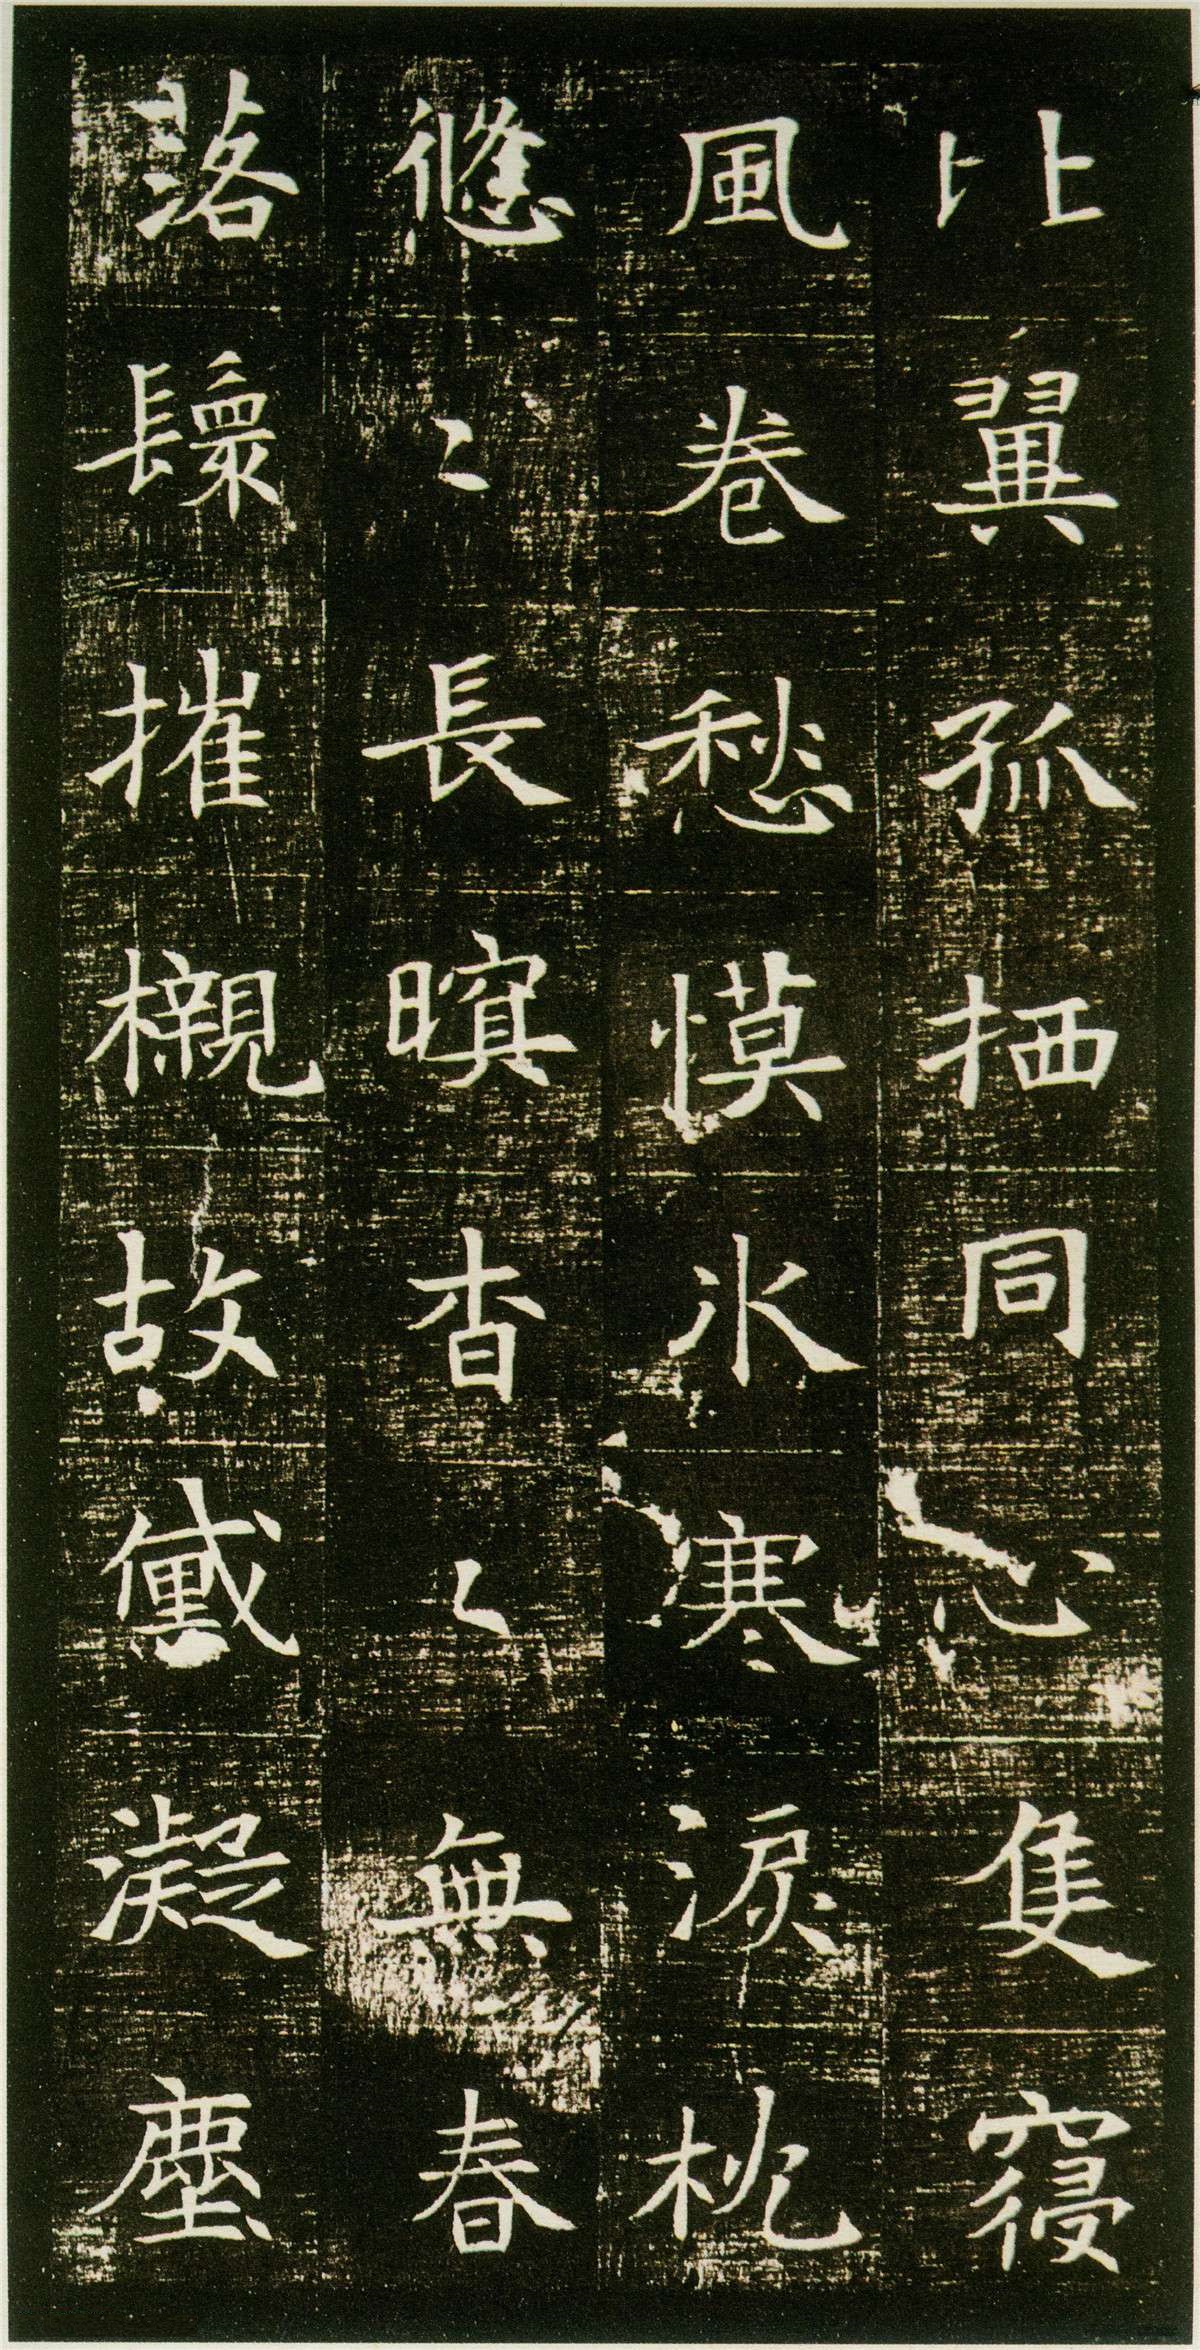 比翼孤栖同心隻寢
風卷愁幙冰寒淚枕
悠〻長暝杳〻無春
落鬟摧櫬故黛凝塵